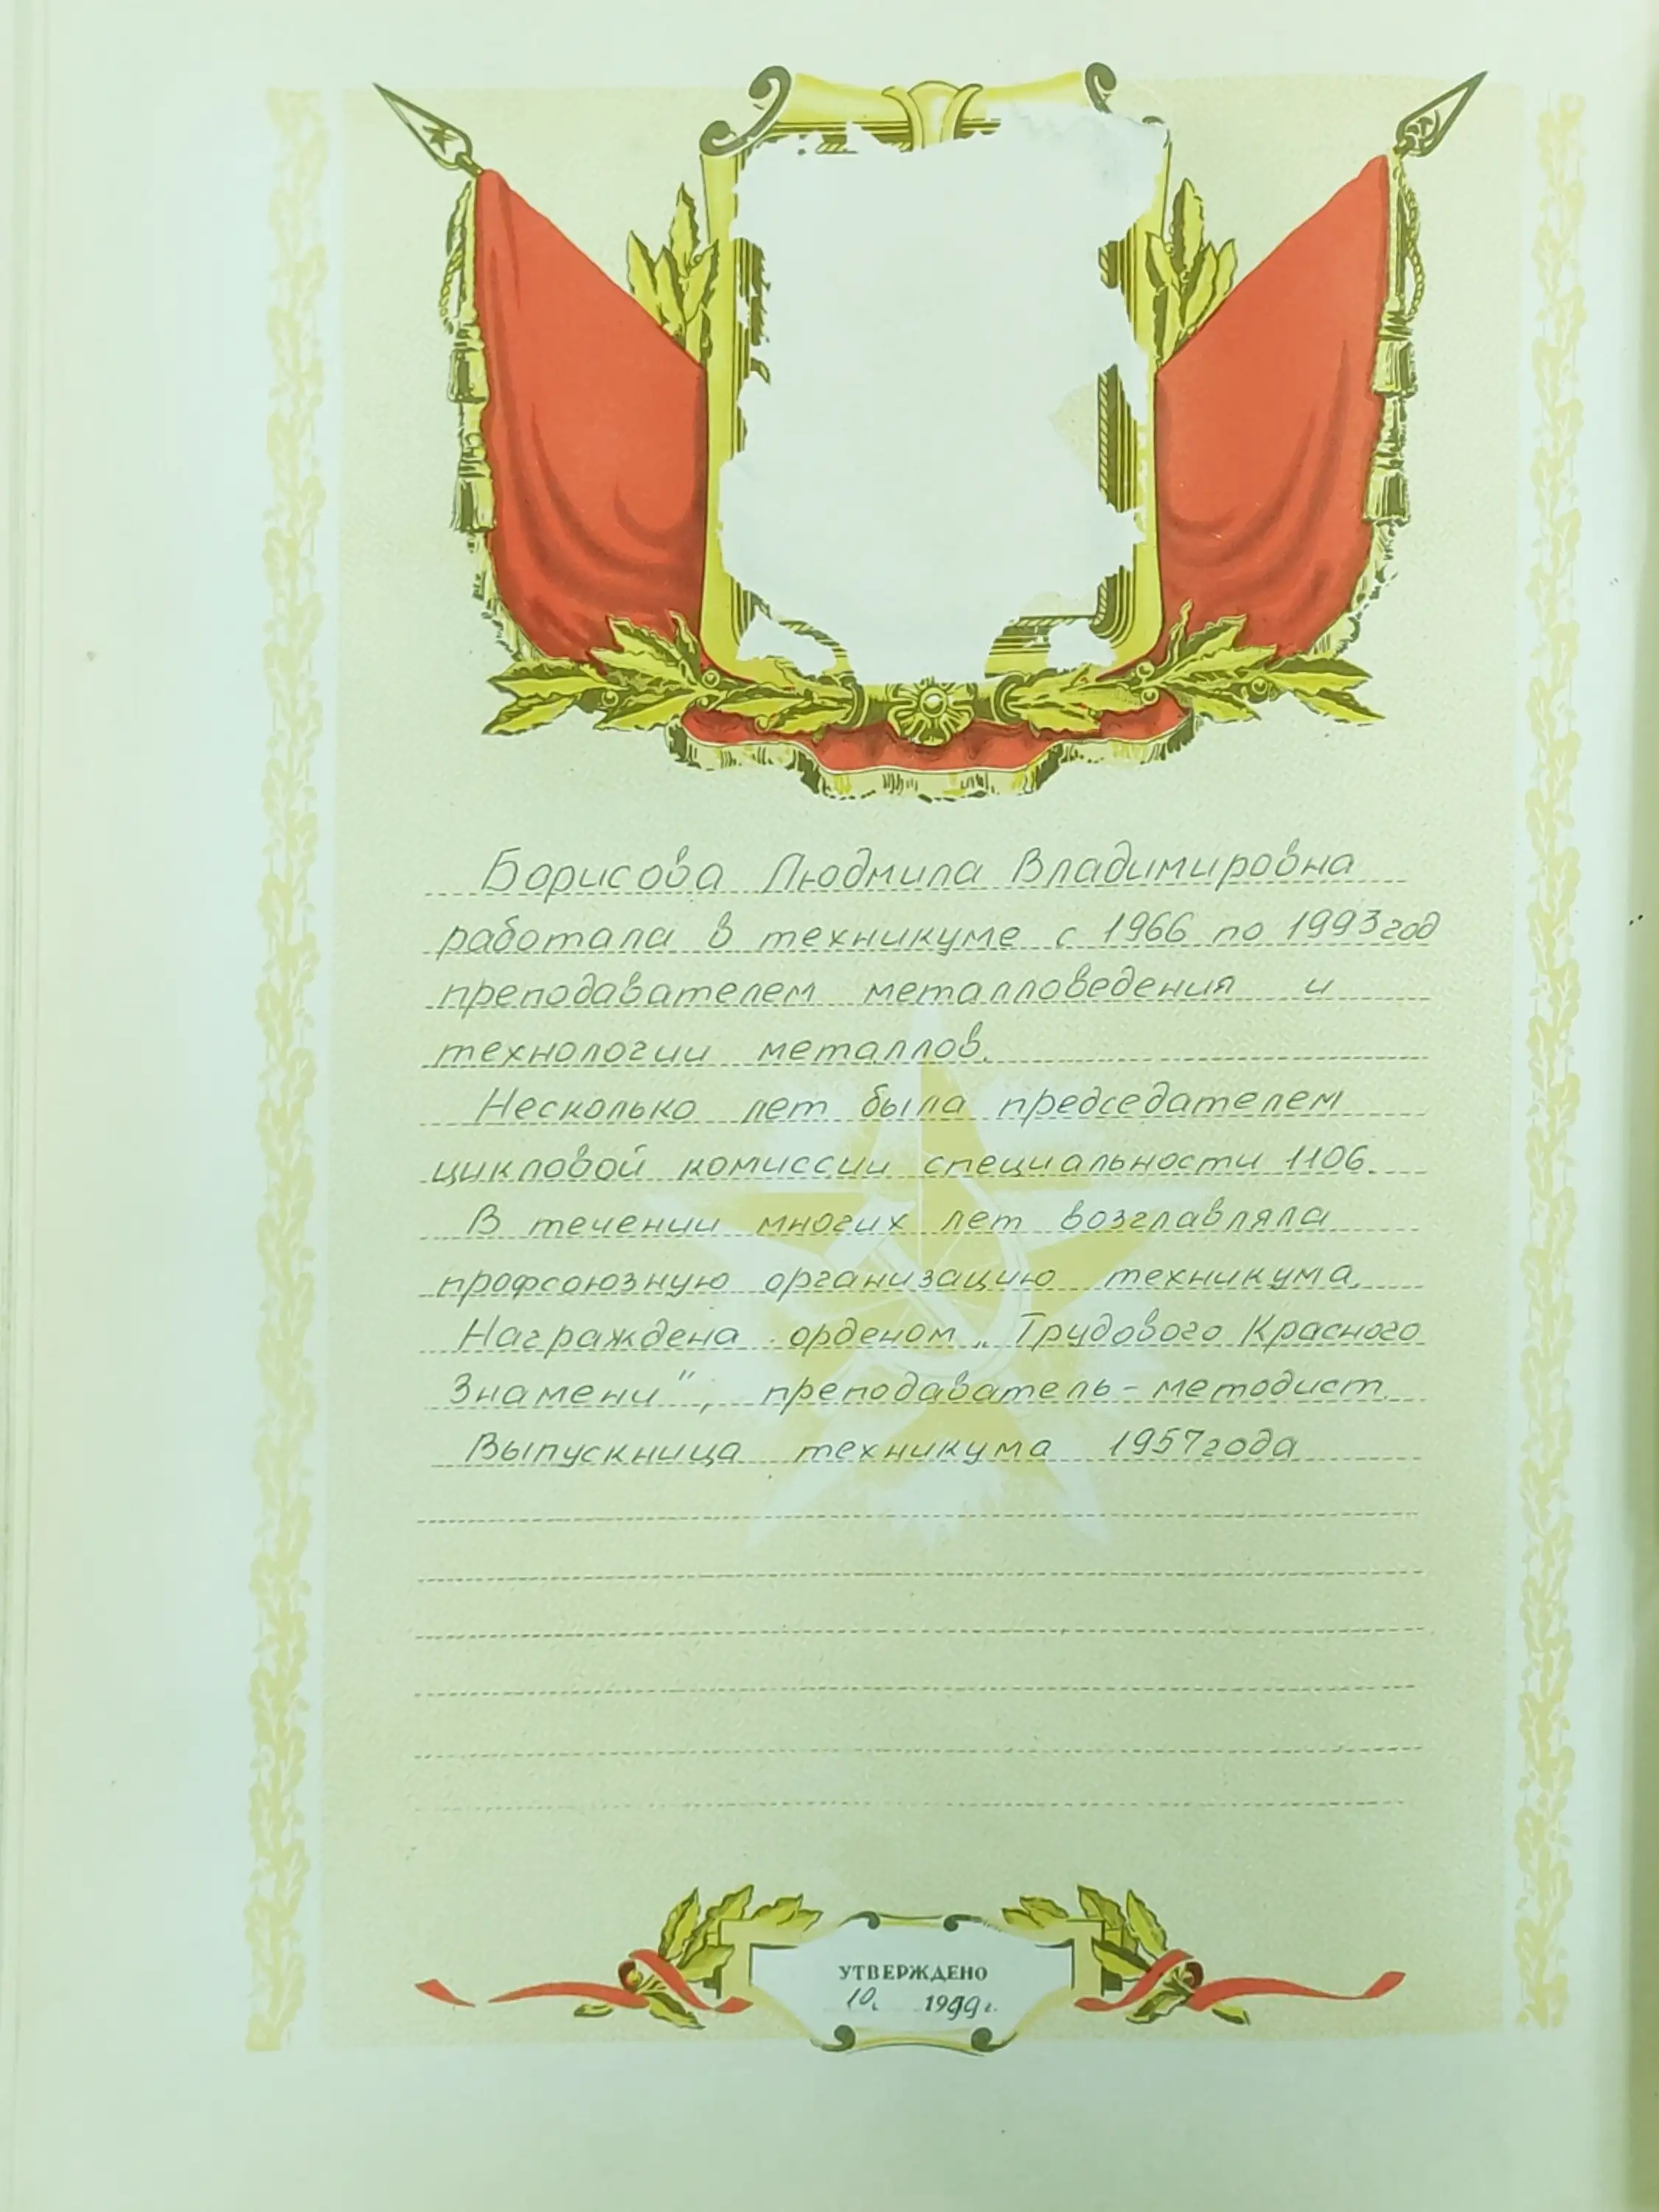 Борисова Людмила Владимировна
работала в техникуме с 1966 по 1993 год
преподавателем металловедения и
технологии металлов.
Несколько лет была председателем
цикловой комиссии специальности 1106.
В течении многих лет возглавляла
профсоюзную организацию техникума.
Награждена орденом „Трудового Красного
Знамени", преподаватель-методист.
Выпускница техникума 1957 года
УТВЕРЖДЕНО
10. 1999 г.